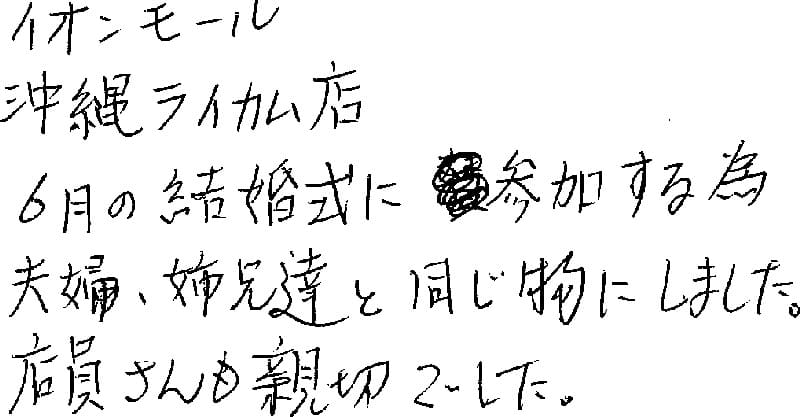 イオンモール
沖縄ライカム店
6月の結婚式に参加する為
夫婦、姉兄達と同じ物にしました。
店員さんも親切でした。